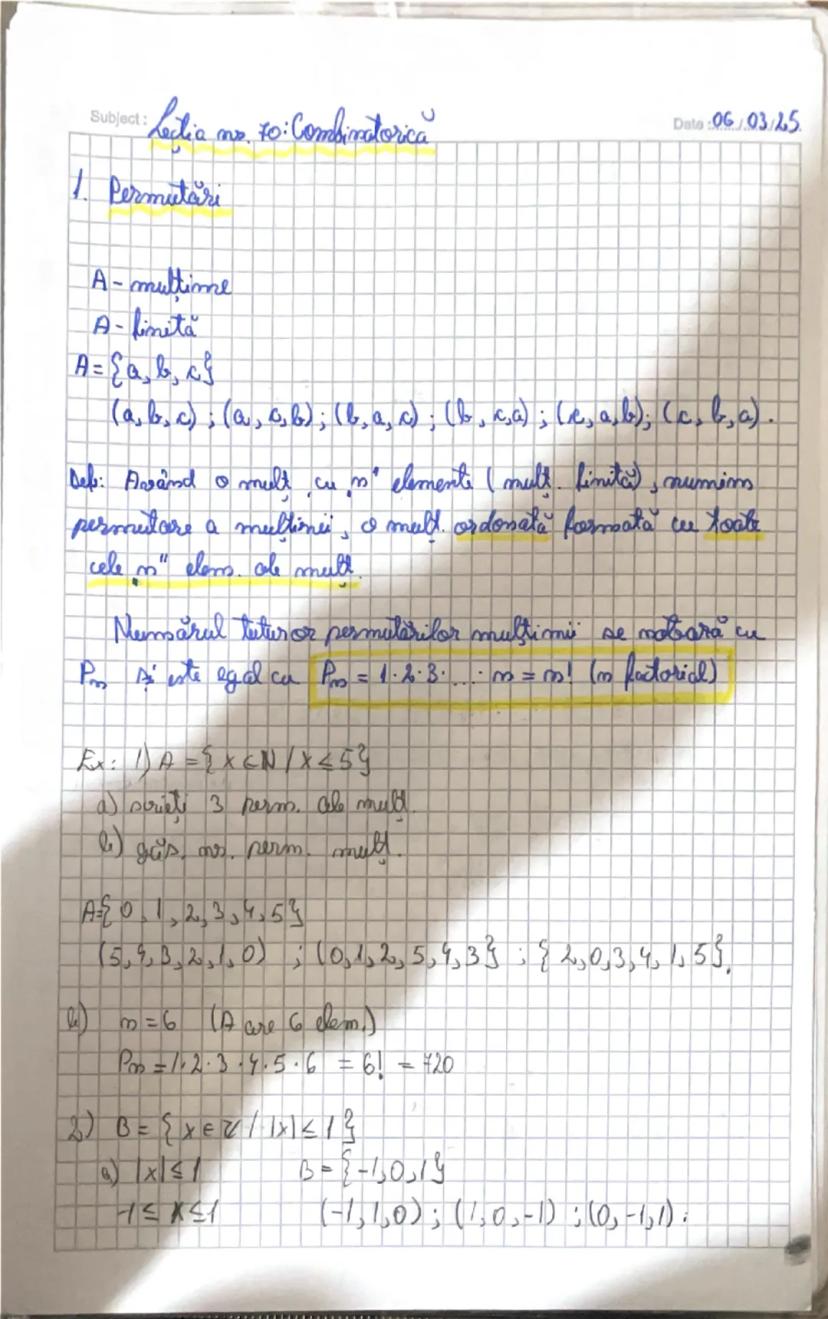 Subject: Lecția nr. 70: Combinatorică
Date: 06/03/25
1. Permutări
A - mulțime
A - finită
A = {a, b, c}
(a, b, c) ; (a, c, b) ; (b, a, c) ; (b, c, a) ; (c, a, b) ; (c, b, a).
Def: Având o mulț. cu „n" elemente (mulț. finită), numim
permutare a mulțimii, o mulț. ordonată formată cu toate
cele „n" elem. ale mulț.
Numărul tuturor permutărilor mulțimii se notează cu
Pn și este egal cu Pn = 1·2·3·...·n = n! (n factorial)
Ex: 1) A = {x ∈ N / x ≤ 5}
a) scrieți 3 perm. ale mulț.
b) găs. nr. perm. mulț.
A={0, 1, 2, 3, 4, 5}
(5, 4, 3, 2, 1, 0) ; (0, 1, 2, 5, 4, 3} ; {2, 0, 3, 4, 1, 5}.
b) n = 6 (A are 6 elem.)
Pn = 1·2·3·4·5·6 = 6! = 720
2) B = {x ∈ Z / |x| ≤ 1}
a) |x| ≤ 1 B = {-1, 0, 1}
-1 ≤ x ≤ 1 (-1, 1, 0) ; (1, 0, -1) ; (0, -1, 1) ;